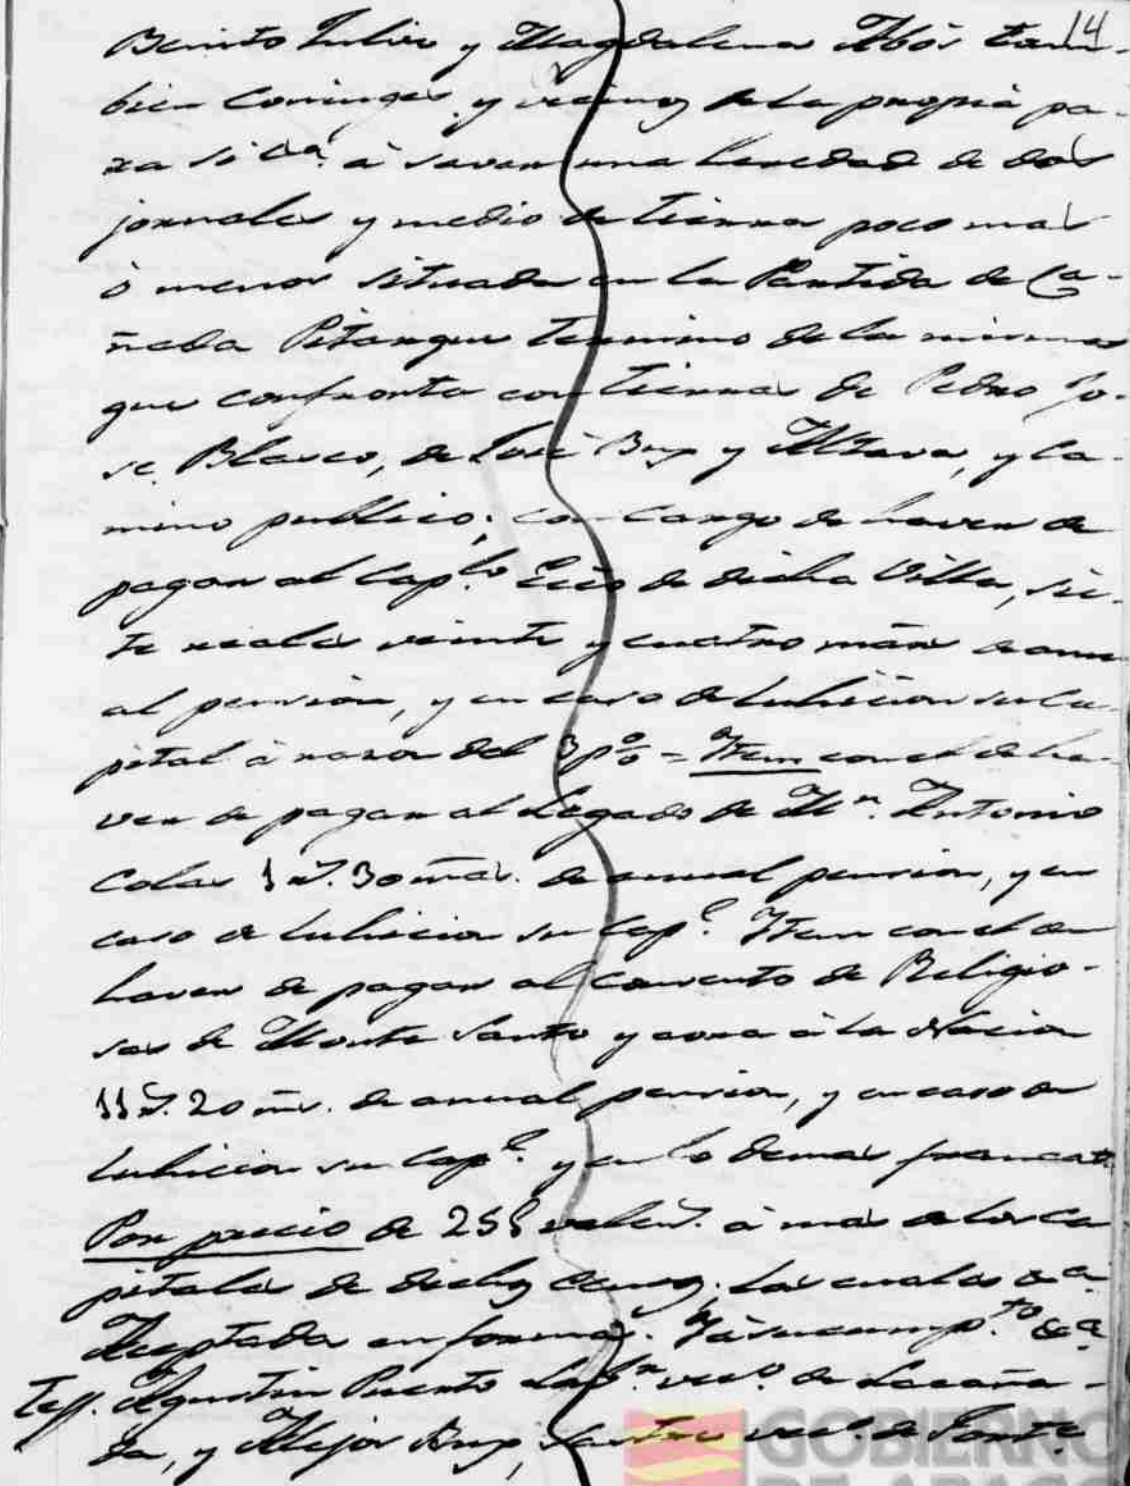 14
Benito Julve y Magdalena Abós tam-
bien Conjuges y vecinos de la propia pa-
ra si &ca. á saver una heredad de dos
jornales y medio de tierra poco mas
ó menos situada en la Partida de Ca-
ñada Pitarque termino de la misma
que confronta con tierras de Pedro Jo-
se Blasco, de José Buj y Altava, y ca-
mino publico; con cargo de haver de
pagar al Cap.lo Ecco de dicha Villa, sie-
te reales veinte y cuatro mãrs de anu
al pension, y en caso de luhicion su ca-
pital á razon del 3 p% = Item con el de ha-
ver de pagar al Legado de Mn. Antonio
Colas 1 r.s 30 mãs. de annual pension, y en
caso de luhicion su Cap.l Item con el de
haver de pagar al Convento de Religio-
sas de Monte Santo y aora á la Nacion
11 r.s 20 ms. de anual pension, y en caso de
luhicion su Cap.l y en lo demas franca &
Por precio de 25 £ valen.s á mas de los ca
pitales de dichos Censos; las cuales &ca.
Aceptada en forma. Yá su cump.to &ca
Test. Agustin Puerto Lab.r vec.o de Lacaña-
da, y Alejos Buj, Sastre vec.o de Fort.e
GOBIERNO
DE ARAGON